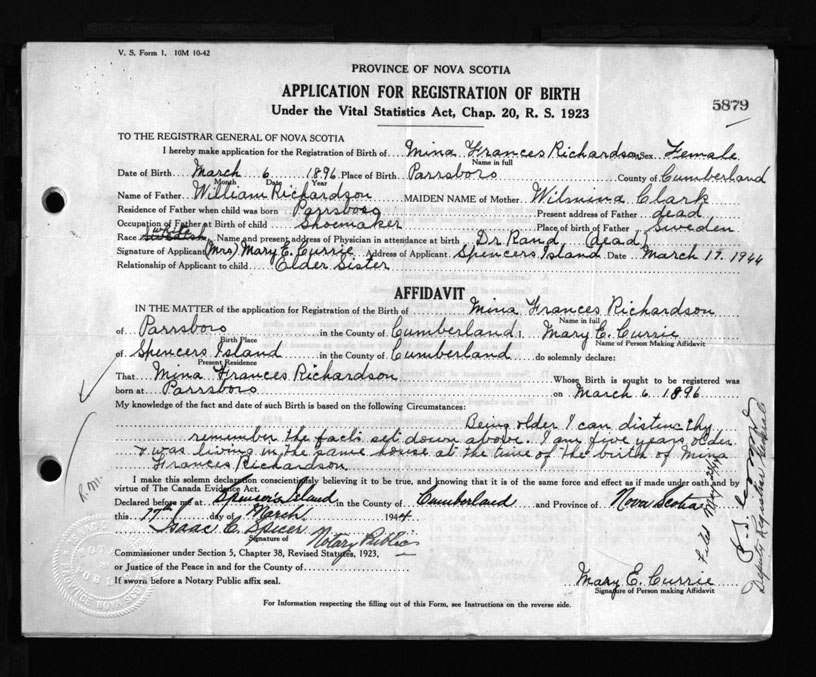 V. S. Form 1. 10M 10-42
PROVINCE OF NOVA SCOTIA
APPLICATION FOR REGISTRATION OF BIRTH
5879
Under the Vital Statistics Act, Chap. 20, R. S. 1923
TO THE REGISTRAR GENERAL OF NOVA SCOTIA
I hereby make application for the Registration of Birth of Mina Frances Richardson Sex Female
Name in full
Date of Birth March 6 1896 Place of Birth Parrsboro County of Cumberland
Month Date Year
Name of Father William Richardson MAIDEN NAME of Mother Wilmina Clark
Residence of Father when child was born Parrsboro Present address of Father dead
Occupation of Father at Birth of child Shoemaker Place of birth of Father Sweden
Race Name and present address of Physician in attendance at birth Dr Rand (dead)
Signature of Applicant (Mrs) Mary E. Currie Address of Applicant Spencers Island Date March 17. 1944
Relationship of Applicant to child Elder Sister
AFFIDAVIT
IN THE MATTER of the application for Registration of the Birth of Mina Frances Richardson
Name in full
of Parrsboro in the County of Cumberland I, Mary E. Currie
Birth Place Name of Person Making Affidavit
of Spencers Island in the County of Cumberland do solemnly declare:
Present Residence
That Mina Frances Richardson Whose Birth is sought to be registered was
born at Parrsboro on March 6. 1896
My knowledge of the fact and date of such Birth is based on the following Circumstances:
Being older I can distincthy
remember the facts set down above. I am five years older
& was living in the same house at the time of the birth of Mina
Frances Richardson
I make this solemn declaration conscientiously believing it to be true, and knowing that it is of the same force and effect as if made under oath and by
virtue of The Canada Evidence Act.
Declared before me at Spencer's Island in the County of Cumberland and Province of Nova Scotia
this 17th day of March 1944
Isaac C. Spicer
Signature of Notary Public
Commissioner under Section 5, Chapter 38, Revised Statutes, 1923,
or Justice of the Peace in and for the County of
If sworn before a Notary Public affix seal.
Mary E. Currie
Signature of Person making Affidavit
For Information respecting the filling out of this Form, see Instructions on the reverse side.
R.M.
Filed
Deputy Registrar General